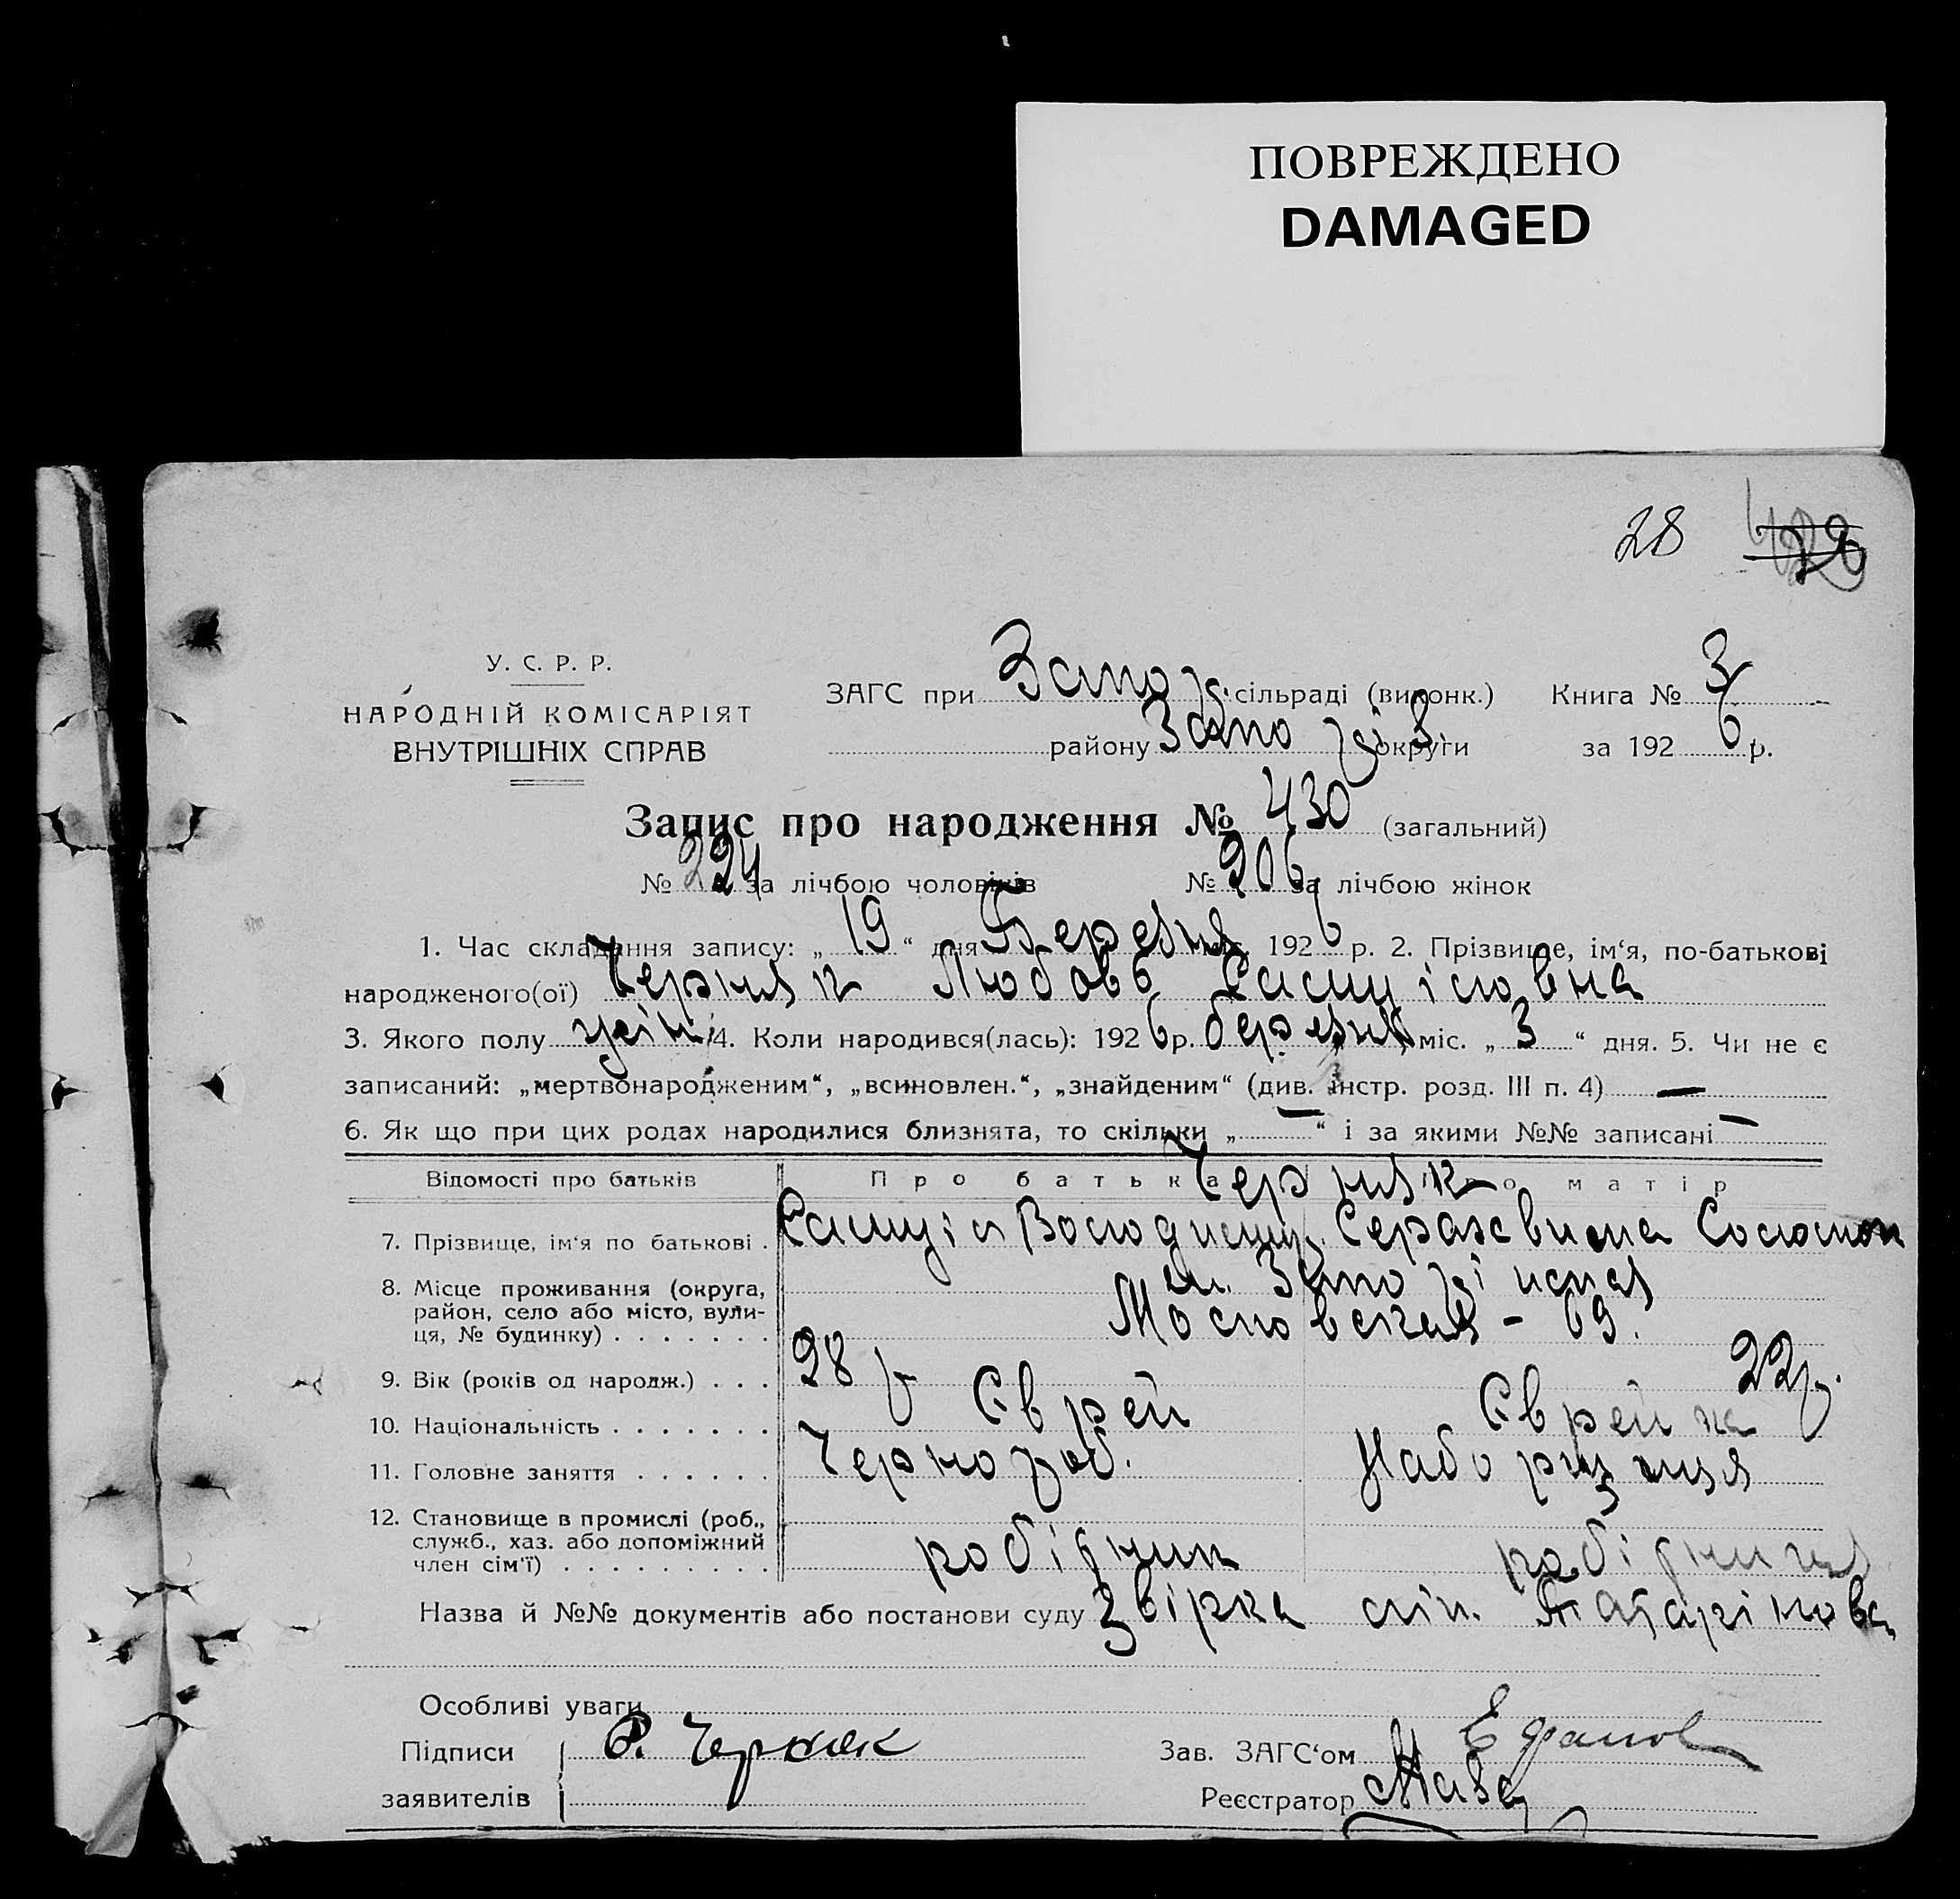 ПОВРЕЖДЕНО
DAMAGED
28
У. С. Р. Р.
НАРОДНІЙ КОМІСАРІЯТ
ВНУТРІШНІХ СПРАВ
ЗАГС при Запор. сільраді (виконк.) Книга № 3
району Запорізь округи за 1926 р.
Запис про народження № 430 (загальний)
№ 224 за лічбою чоловіків № 206 за лічбою жінок
1. Час складання запису: „ 19 “ дня Березня міс. 1926 р. 2. Прізвище, ім‘я, по-батькові
народженого(ої) Черняк Любовь Самуіловна
3. Якого полу жін. 4. Коли народився(лась): 1926 р. березня міс. „ 3 “ дня. 5. Чи не є
записаний: „мертвонародженим“, „всиновлен.“, „знайденим“ (див. інстр. розд. III п. 4) —
6. Як що при цих родах народилися близнята, то скільки „ — “ і за якими №№ записані —
Відомості про батьків Про батька Про матір
Черняк
7. Прізвище, ім‘я по батькові . Самуіл Володимир. Серахвима Соломон
8. Місце проживання (округа, район, село або місто, вули-ця, № будинку) . . . . . . . м. Запоріжжя
Московская - 69.
9. Вік (років од народж.) . . . 28 р 22 р.
10. Національність . . . . . . . Єврей Єврейка
11. Головне заняття . . . . . . Чернороб. Наборщиця
12. Становище в промислі (роб., служб., хаз. або допоміжний член сім‘ї) . . . . . . . . . робідник робідниця
Назва й №№ документів або постанови суду Звірка
Особливі уваги
Підписи заявителів Черняк
Зав. ЗАГС‘ом
Реєстратор